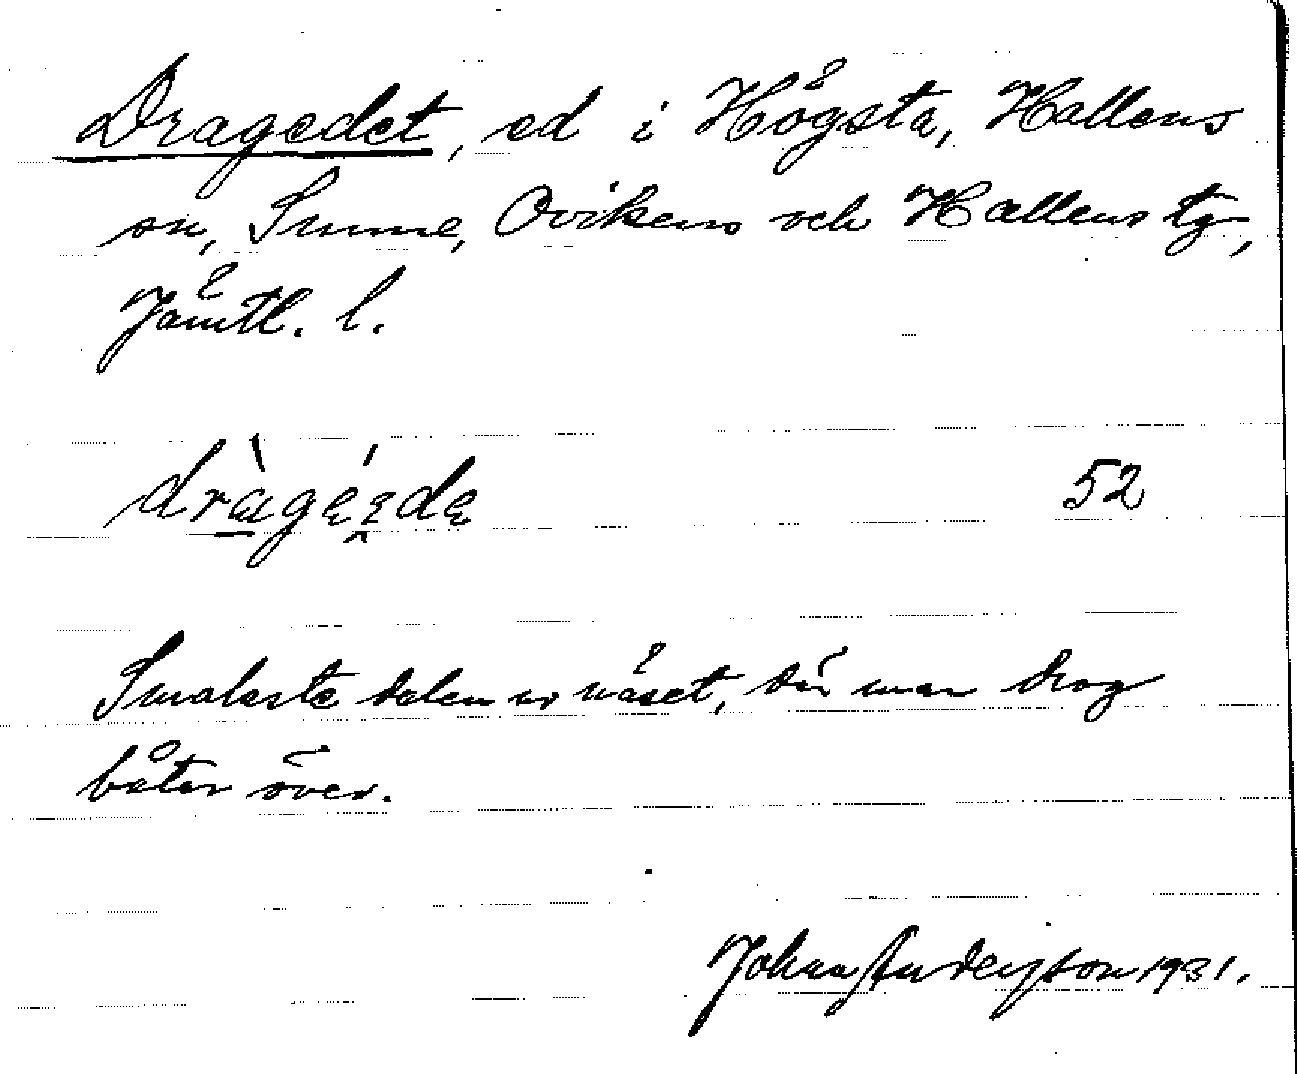 Dragedet, ed i Högsta, Hallens
sn, Sunne, Ovikens och Hallens tg,
Jämtl. l.
52
Smalaste delen av näset, där man drog
båtar över.
Johan Andersson 1931.